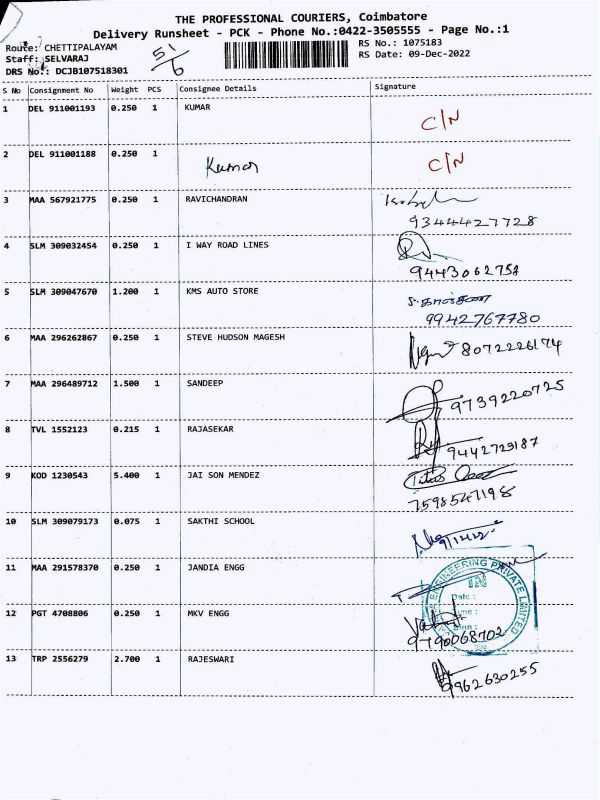 THE PROFESSIONAL COURIERS, Coimbatore
Delivery Runsheet - PCK - Phone No.:0422-3505555 - Page No.:1
Route: CHETTIPALAYAM 51/6 RS No.: 1075183
Staff: SELVARAJ RS Date: 09-Dec-2022
DRS No.: DCJB107518301
S No Consignment No Weight PCS Consignee Details Signature
1 DEL 911001193 0.250 1 KUMAR C/N
2 DEL 911001188 0.250 1 Kumar C/N
3 MAA 567921775 0.250 1 RAVICHANDRAN
9344427728
4 SLM 309032454 0.250 1 I WAY ROAD LINES
9443062758
5 SLM 309047670 1.200 1 KMS AUTO STORE
9942767780
6 MAA 296262867 0.250 1 STEVE HUDSON MAGESH 8072226174
7 MAA 296489712 1.500 1 SANDEEP 9739220725
8 TVL 1552123 0.215 1 RAJASEKAR
9442723187
9 KOD 1230543 5.400 1 JAI SON MENDEZ
7598547198
10 SLM 309079173 0.075 1 SAKTHI SCHOOL
11 MAA 291578370 0.250 1 JANDIA ENGG
ENGINEERING PRIVATE LIMITED
IN
Date :
Time :
Sign :
12 PGT 4708806 0.250 1 MKV ENGG
13 TRP 2556279 2.700 1 RAJESWARI
9962630255